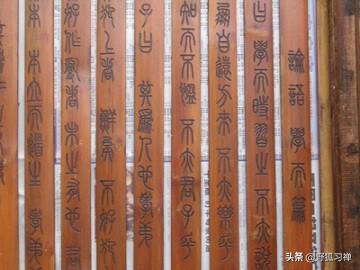 論語 學而篇
曰 學而時習之 不亦說
朋自遠方來 不亦樂乎
知而不慍 不亦君子乎
子曰 其為人也孝弟
犯上者 鮮矣 不好犯
好作亂者 未之有也 君
本 本立而道生 孝弟
头条 @野狐习禅